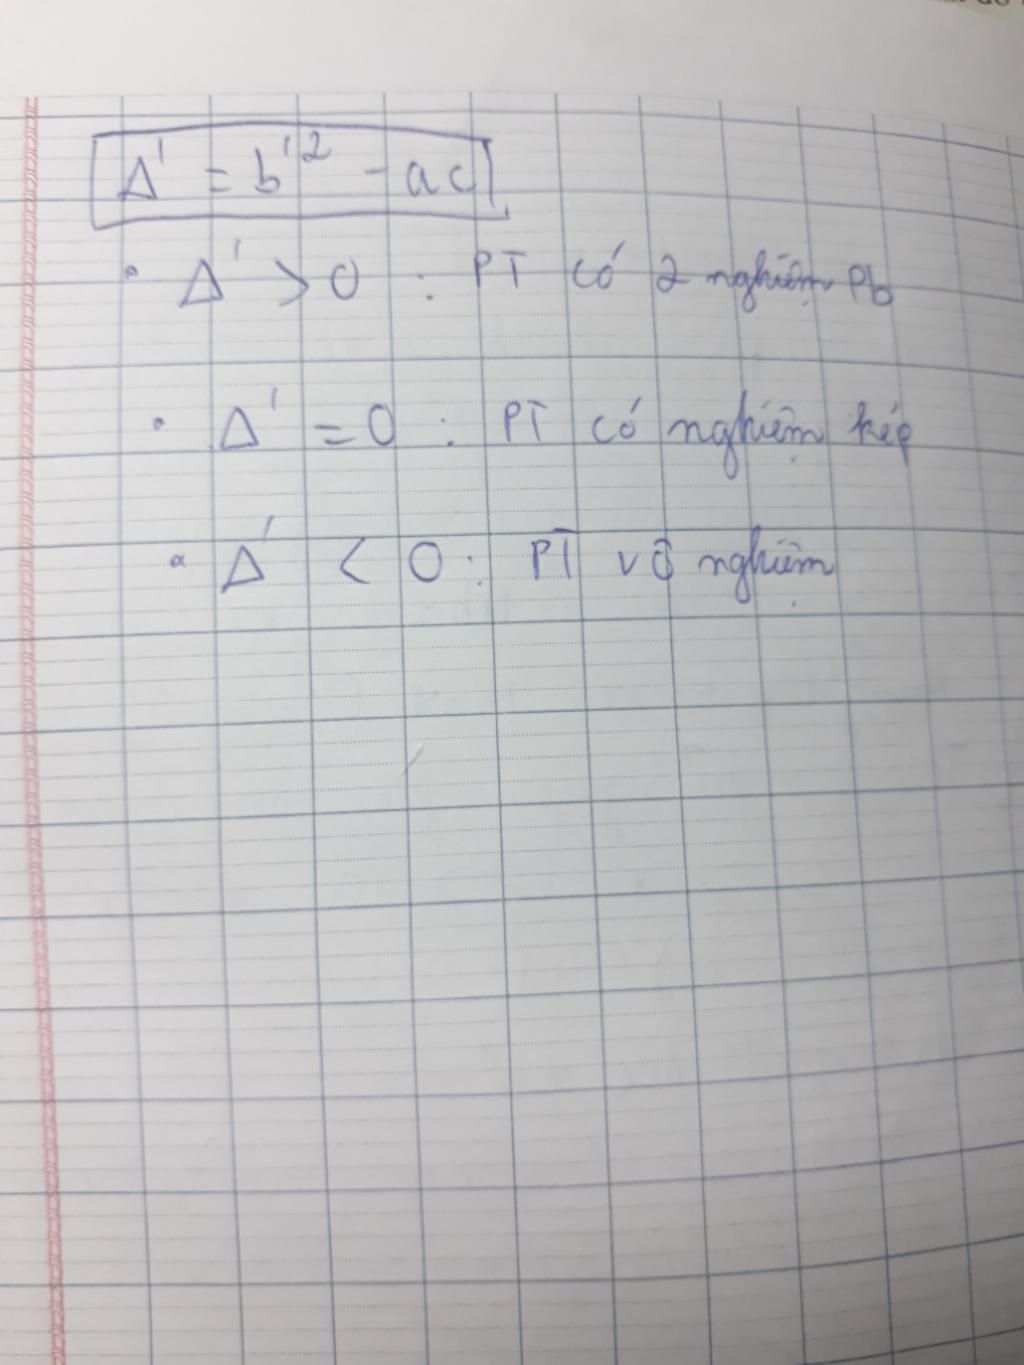 Δ' = b'² - ac
• Δ' > 0 : PT có 2 nghiệm Pb
• Δ' = 0 : PT có nghiệm kép
• Δ' < 0 : PT vô nghiệm